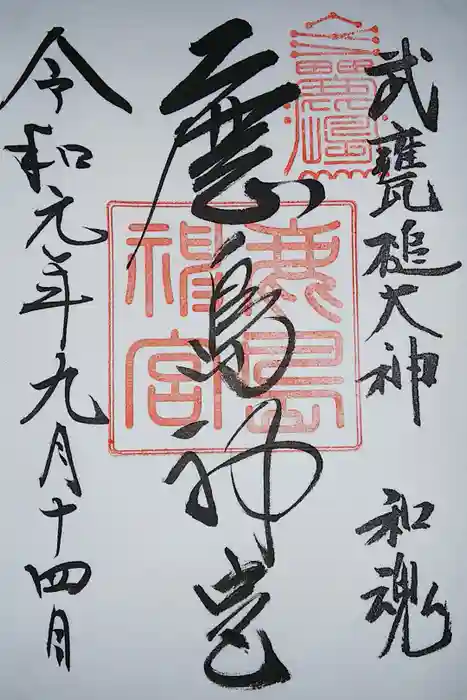 武甕槌大神 和魂
鹿島神宮
鹿島
神宮
令和元年九月十四日